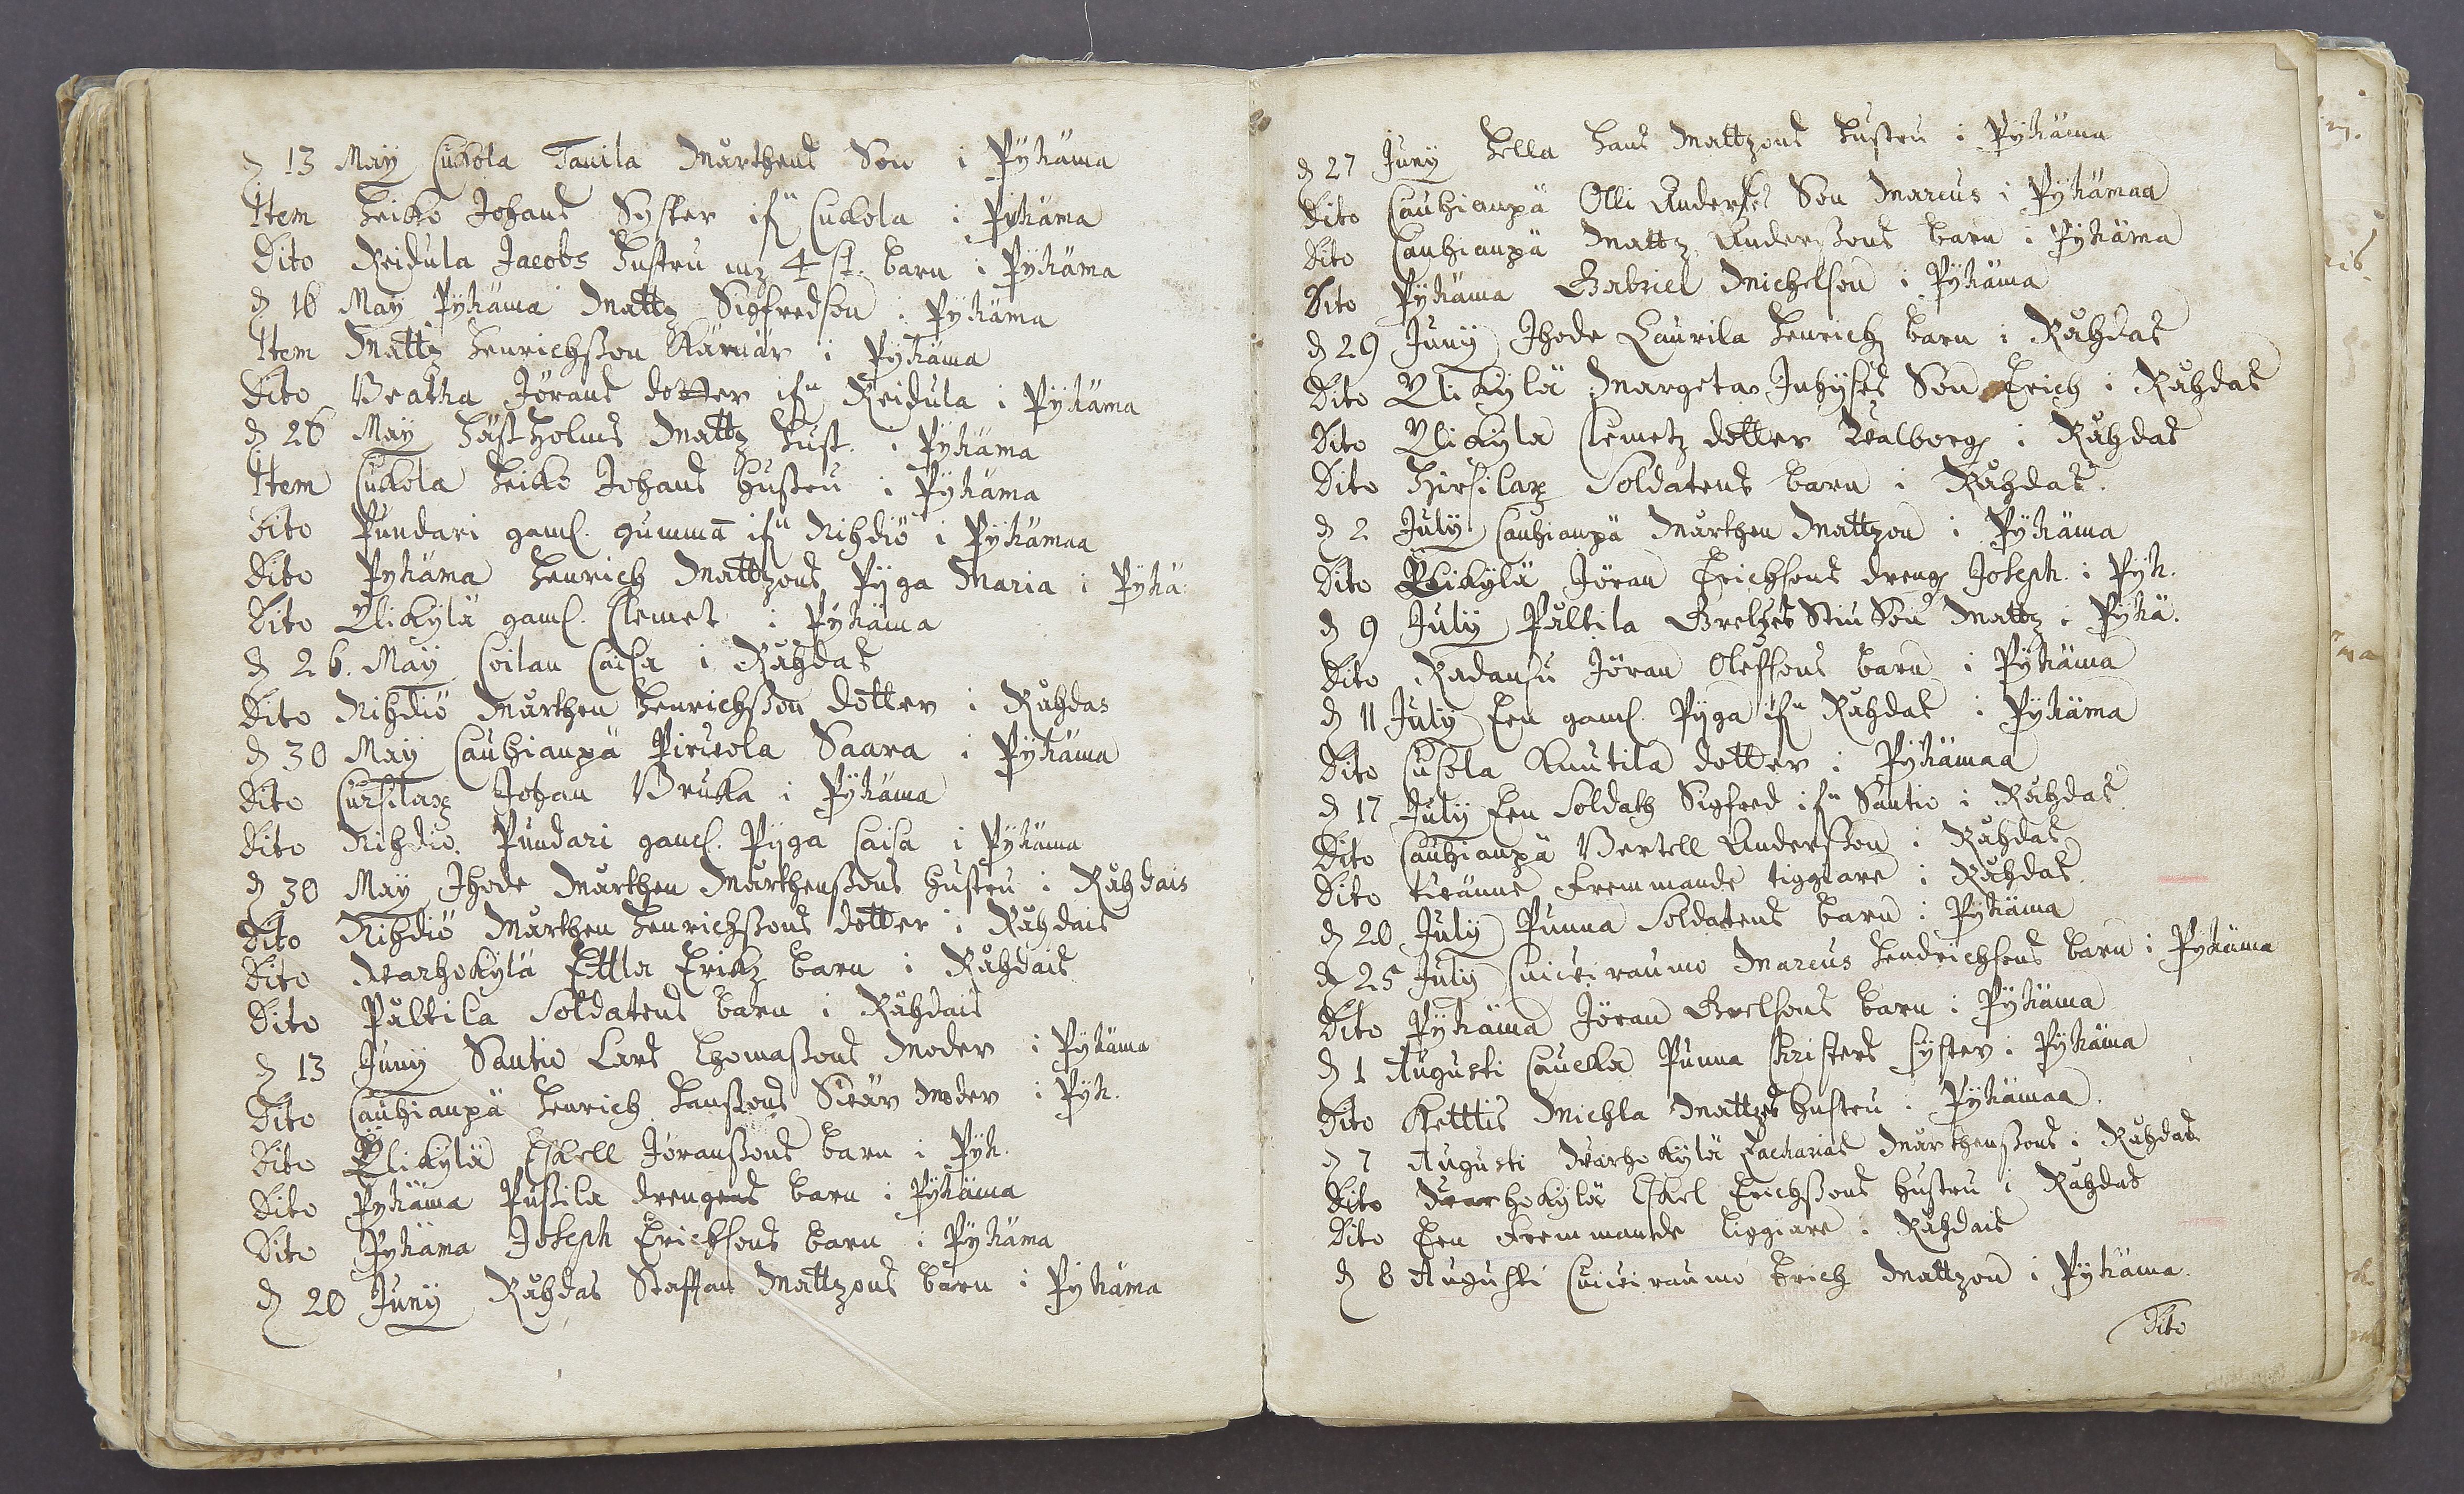 d 13 Maÿ Cukola Tanila Mårthens Son i Pÿhäma
Item Heiko Johans Syster ifn Cukola i Pÿhäma
Dito Reidula Jacobs hustru mz 4 st. barn i Pÿhäma
d 16 Maÿ Pÿhäma Mattz Sigfredson i Pÿhäma
Item Mattz Henrichsson Kärnär i Pÿhäma
Dito Beatha Jörans dotter ifn Reidula i Pÿhäma
d 26 Maÿ Hästholms Mattz hust. i Pÿhäma
Item Cukola Heiko Johans hustru i Pÿhäma
Dito Pundari gaml. gumma ifn Nihdiö i Pÿhämaa
Dito Pyhäma Henrich Mattzons Pÿga Maria i Pÿhä
Dito Ylikylä gaml. Clemet i Pÿhäma
d 26. Maÿ Coilan Caisa i Råhdas
Dito Nihdiö Mårthen Henrichsson dotter i Råhdas
d 30 Maÿ Cauhianpä Pircola Saara i Pÿhäma
Dito Cursilax Johan Brukka i Pÿhäma
Dito Nihdiö Pundari gaml. Pÿga Caisa i Pÿhäma
d 30 Maÿ Ihode Mårthen Mårthenssons hustru i Råhdais
Dito Nihdiö Mårthen Henrichssons dotter i Råhdais
Dito Warhokylä Ettla Erikz barn i Råhdais
Dito Paltila Soldatens barn i Råhdais
d 13 Junÿ Santio Lars Thomassons Moder i Pÿhäma
Dito Cauhianpä Henrich Hanssons Swär Moder i Pÿh.
Dito Ÿlikylä Eskell Jöranssons barn i Pÿh.
Dito Pyhäma Pussila drengens barn i Pÿhäma
Dito Pyhäma Joseph Erichsons barn i Pyhäma
d 20 Junÿ Råhdas Staffan Mattzons barn i Pyhäma
d 27 Junÿ Hella Hans Mattzons hustru i Pÿhäma
Dito Cauhianpä Olli Anders Son Marcus i Pÿhämaa
Dito Cauhianpä Mattz Anderssons barn i Pÿhäma
Dito Pÿhäma Gabriel Michelson i Pÿhäma
d 29 Junÿ Ihode Laurila Henrichz barn i Råhdas
Dito Ylikylä Margeta Son Erich i Råhdas
Dito Ylikyla Clemetz dotter Walborg i Råhdas
Dito Hirsilax Soldatens barn i Råhdas.
d 2 Julÿ Cauhianpä Mårthen Mattzon i Pÿhäma
Dito Ylikÿlä Jöran Erichsons dreng Joseph i Pyh.
d 9 Julÿ Paltila Stiu Son Mattz i Pyhä.
Dito Radansu Jöran Olefsons barn i Pÿhäma
d 11 Julÿ Een gaml. Pÿga ifn Råhdas i Pÿhäma
Dito Cusola Knutila dotter i Pÿhämaa
d 17 Julÿ Een Soldath Sigfred ifn Santio i Råhdas
Dito Cauhianpä Bertell Andersson i Råhdas
Dito twänne Fremmande tiggiare i Råhdas.
d 20 Julÿ Punna Soldatens barn i Pyhäma
d 25 Julÿ Cuiviraumo Marcus Hendrichsons barn i Pyhäma
Dito Pÿhäma Jöran Grelsons barn i Pÿhäma
d 1 Augusti Cauella Punna Christers syster i Pyhäma
Dito Ketttis Michla Mattzes hustru i Pÿhämaa.
d 7 Augusti Warhokylä Zacharias Mårthenssons i Råhdas
Dito Warhokylä Eskel Erichssons hustru i Råhdas
Dito Een Fremmande tiggiare i Råhdais
d 8 Augusti Cuiviraumo Erich Mattzon i Pyhäma.
Dito